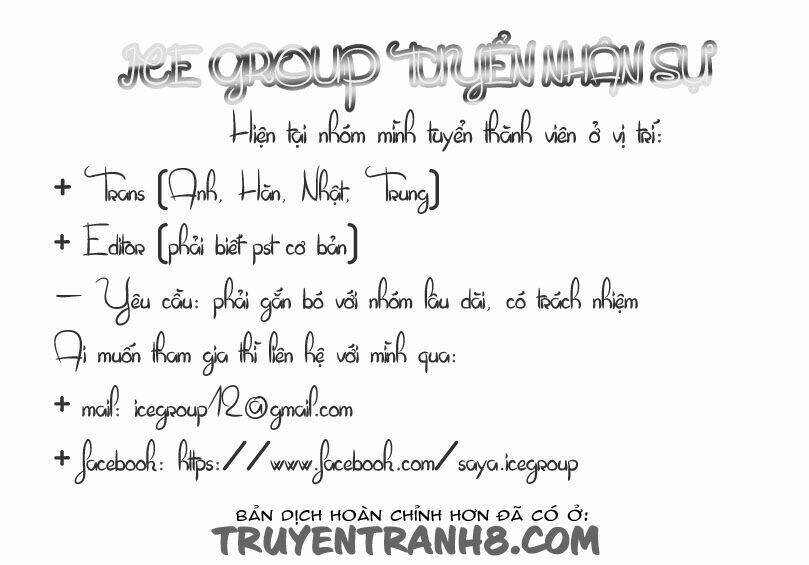 ICE GROUP TUYỂN NHÂN SỰ
Hiện tại nhóm mình tuyển thành viên ở vị trí:
+ Trans (Anh, Hàn, Nhật, Trung)
+ Editor (phải biết pst cơ bản)
- Yêu cầu: phải gắn bó với nhóm lâu dài, có trách nhiệm
Ai muốn tham gia thì liên hệ với mình qua:
+ mail: icegroup12@gmail.com
+ facebook: https://www.facebook.com/saya.icegroup
BẢN DỊCH HOÀN CHỈNH HƠN ĐÃ CÓ Ở:
TRUYENTRANH8.COM